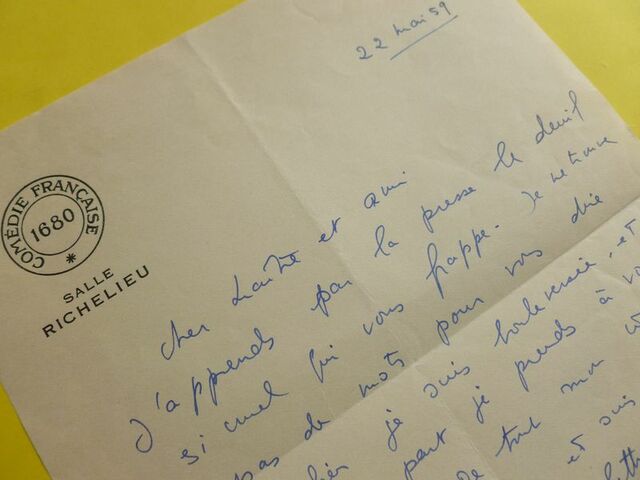 22 mai 59
COMÉDIE FRANÇAISE
1680
SALLE
RICHELIEU
cher Maître et ami
J'apprends par la presse le deuil
si cruel qui vous frappe. Je ne trouve
pas de mots pour vous dire
je suis bouleversée. et
part je prends à
de tout mon
et suis